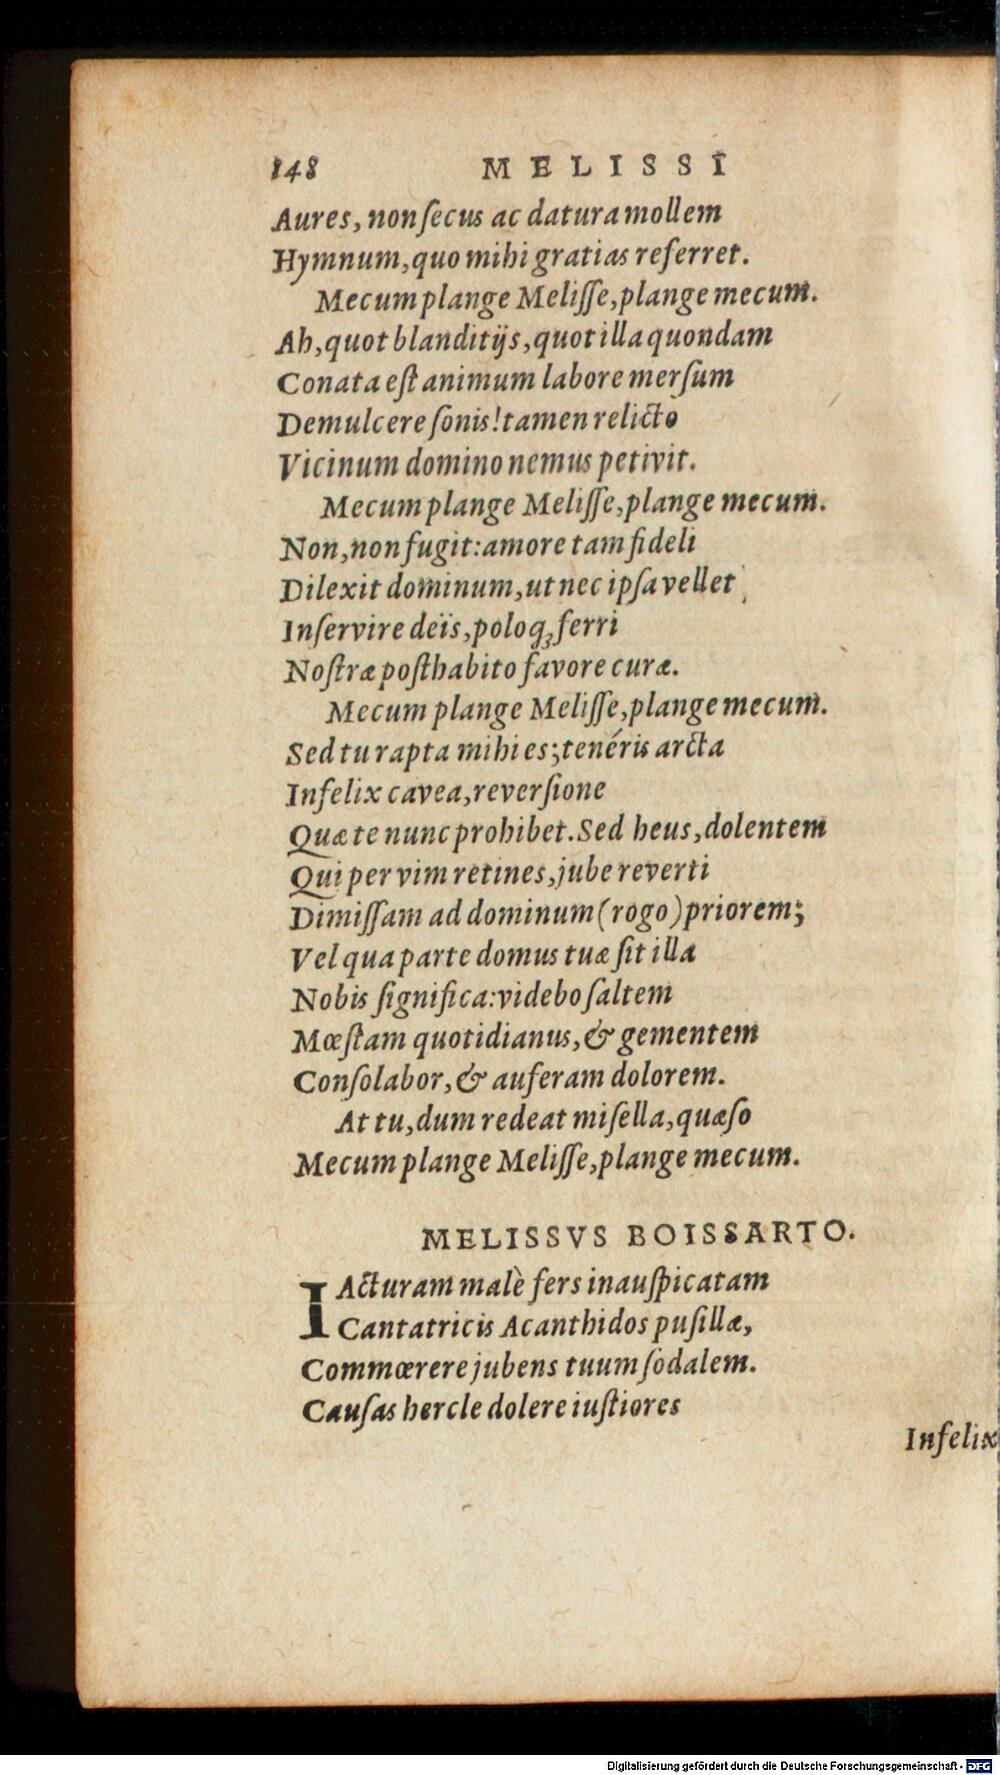 148 MELISSI
Aures, non ſecus ac datura mollem
Hymnum, quo mihi gratias referret.
Mecum plange Meliſſe, plange mecum.
Ah, quot blanditijs, quot illa quondam
Conata eſt animum labore merſum
Demulcere ſonis! tamen relicto
Vicinum domino nemus petivit.
Mecum plange Meliſſe, plange mecum.
Non, non fugit: amore tam fideli
Dilexit dominum, ut nec ipſa vellet
Inſervire deïs, poloq; ferri
Noſtræ poſthabito favore curæ.
Mecum plange Meliſſe, plange mecum.
Sed tu rapta mihi es; tenéris arcta
Infelix cavea, reverſione
Quæ te nunc prohibet. Sed heus, dolentem
Qui per vim retines, jube reverti
Dimiſſam ad dominum (rogo) priorem;
Vel qua parte domus tuæ ſit illa
Nobis ſignifica: videbo ſaltem
Mœſtam quotidianus, & gementem
Conſolabor, & auferam dolorem.
At tu, dum redeat miſella, quæſo
Mecum plange Meliſſe, plange mecum.
MELISSVS BOISSARTO.
IActuram malè fers inauſpicatam
Cantatricis Acanthidos puſillæ,
Commœrere jubens tuum ſodalem.
Cauſas hercle dolere iuſtiores
Infelix
Digitalisierung gefördert durch die Deutsche Forschungsgemeinschaft - DFG